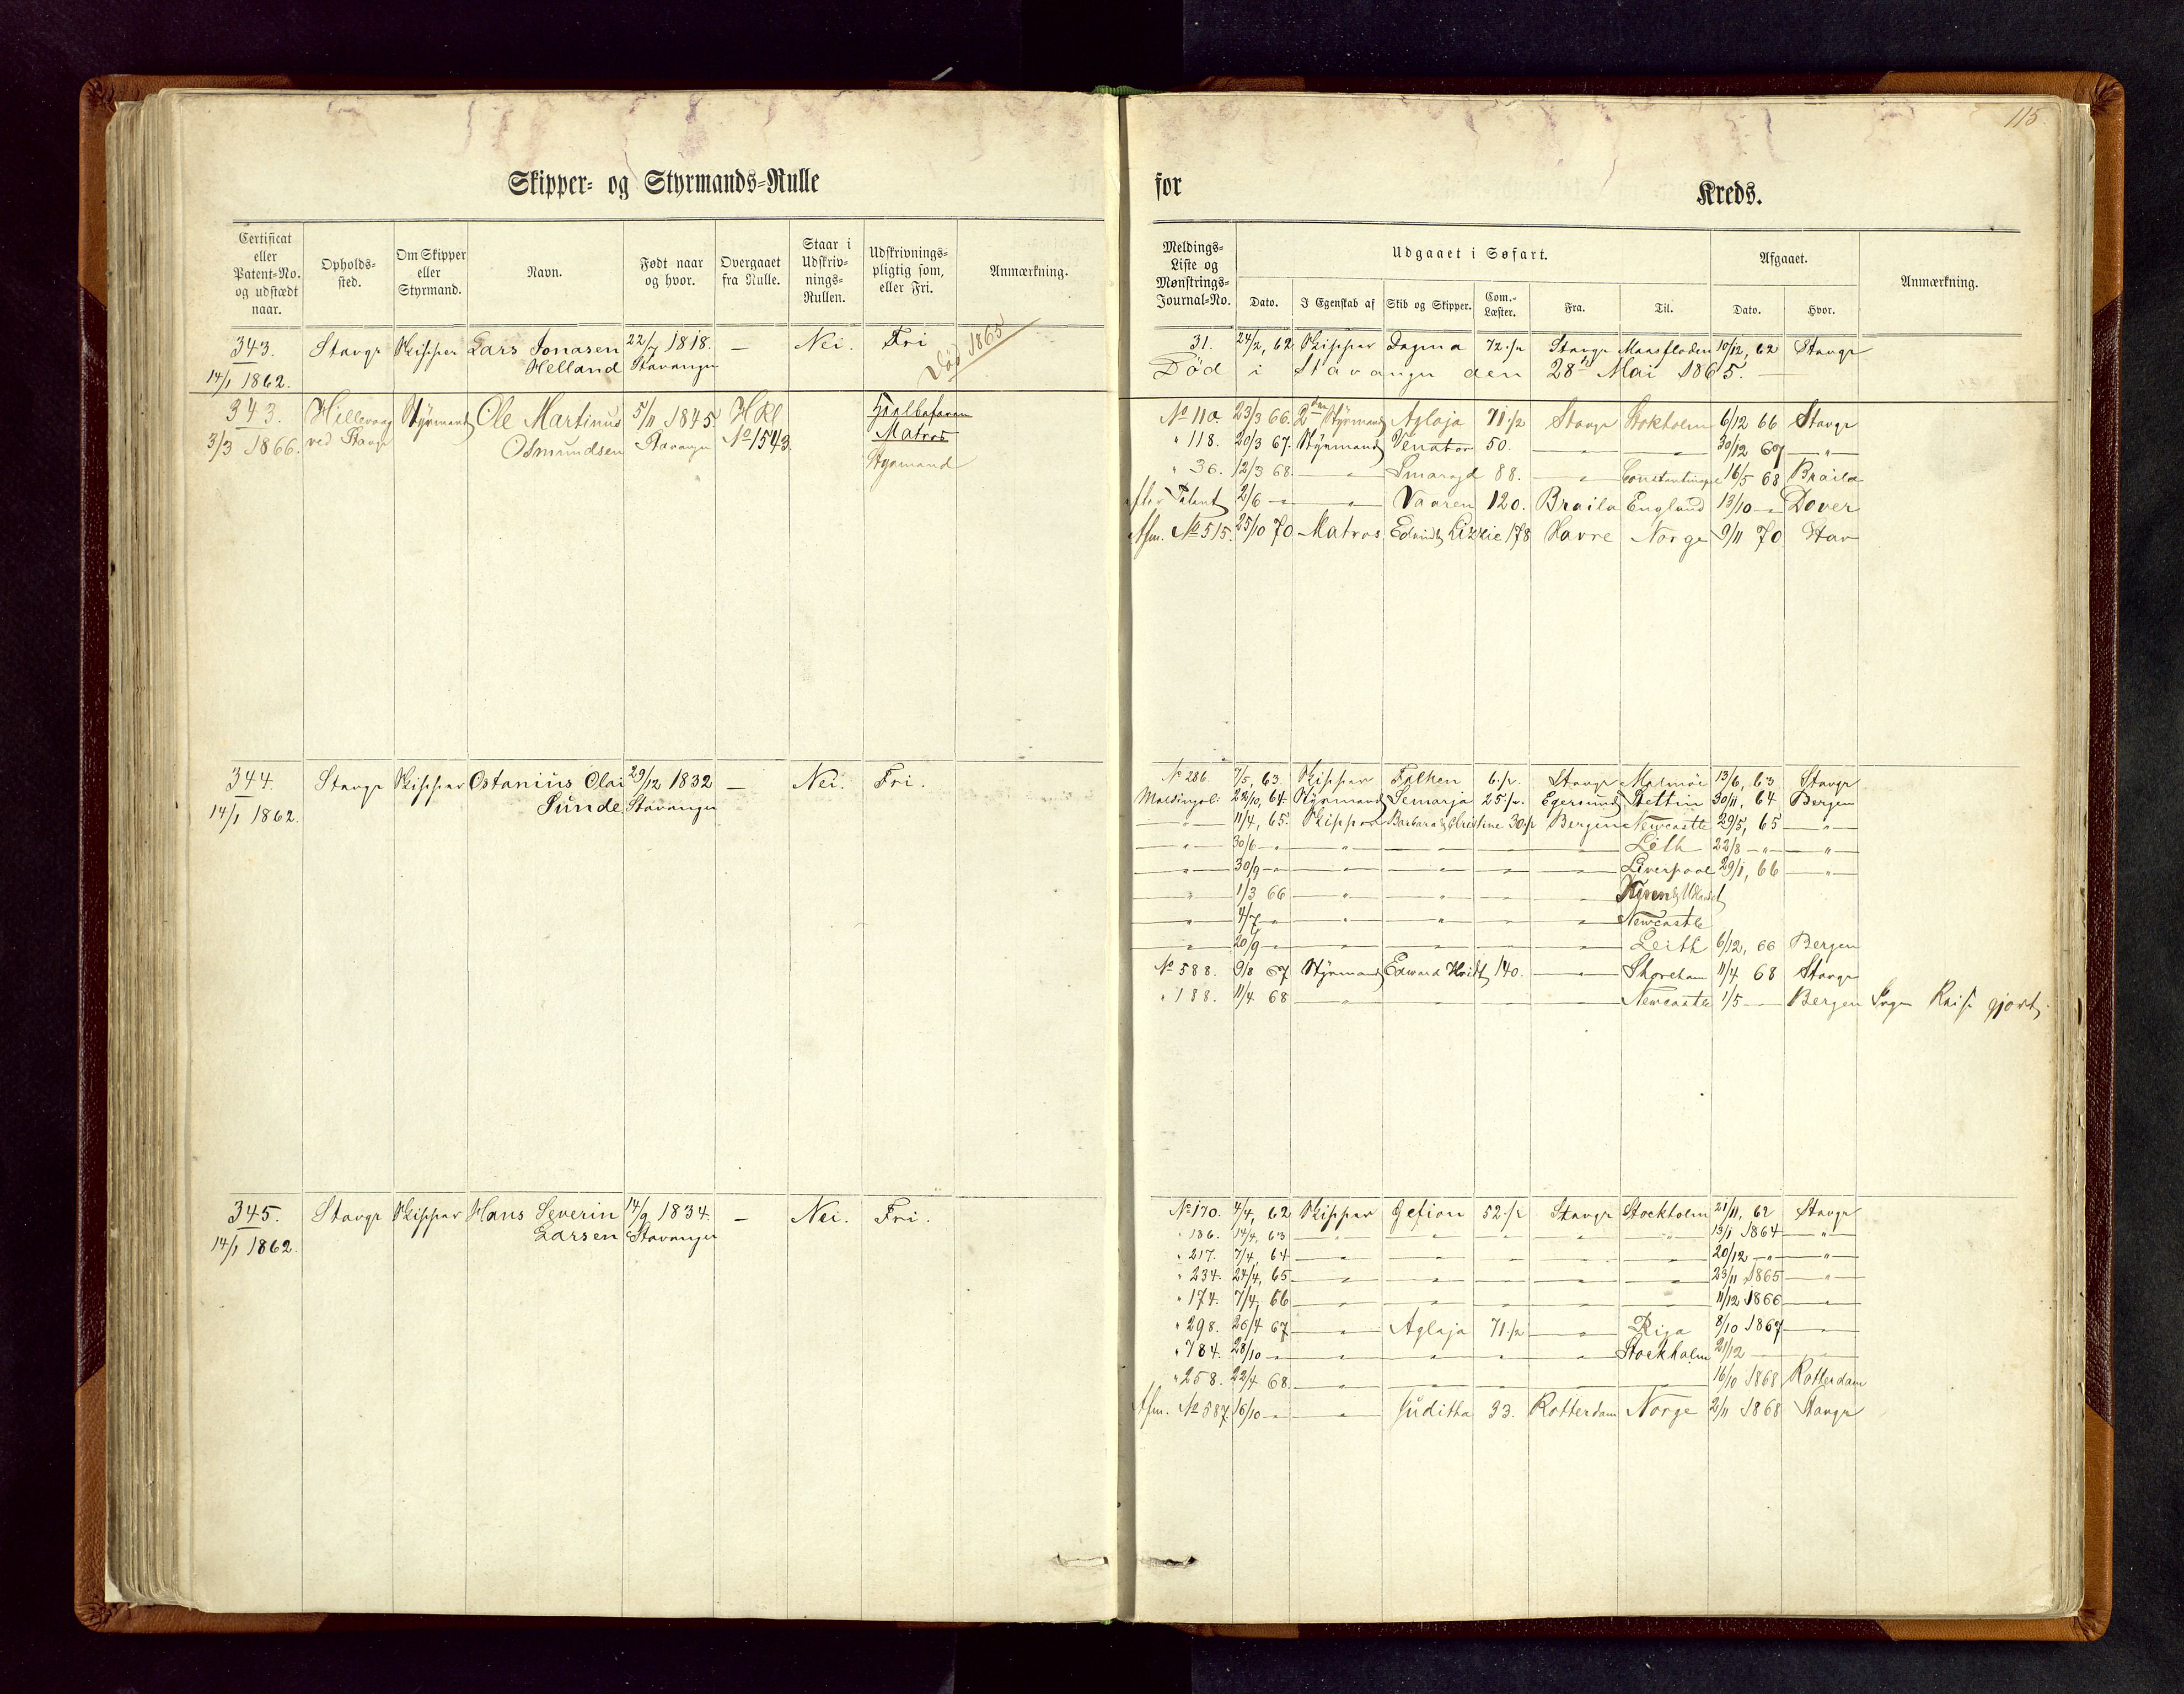 115.
Skipper- og Styrmands-Rulle
for Kreds.
Certificat eller Patent-No. og udstædt naar.
Opholds-sted.
Om Skipper eller Styrmand.
Navn.
Født naar og hvor.
Overgaaet fra Rulle.
Staar i Udskriv-nings-Rullen.
Udskrivnings-pligtig som, eller Fri.
Anmærkning.
Meldings-Liste og Mønstrings-Journal-No.
Udgaaet i Søfart.
Dato.
I Egenskab af
Skib og Skipper.
Com.-Læster.
Fra.
Til.
Afgaaet.
Dato.
Hvor.
Anmærkning.
343. Stavgr Skipper Lars Jonasen 22/7 1818. — Nei. Fri Død 1865
14/1 1862. Helland Stavanger
31. 24/2, 62 Skipper Dagma 72 1/2 Stavgr Maasfloden 10/12, 62 Stavgr
Død i Stavanger den 28 Mai 1865.
343. Hillevaag Styrmand Ole Martinus 5/11 1845 HRl
3/3 1866. ved Stavgr Osmundsen Stavanger No 1543.
Matros
Styrmand
No 110. 23/3 66. 2den Styrmand Aglaja 71 1/2 Stavgr Stokholm 6/12 66 Stavgr
" 118. 20/3 67. Styrmand Venator 50. — " — — " — 30/12 67 — " —
" 36. 12/3 68. — " — Smaragd 88. — " — 16/5 68 Braila
efter Patent 2/6 — " — — " — Vaaren 120. Braila England 13/10 — " — Dover
Afm. No 515. 25/10 70 Matros Lizzie 178 Havre Norge 9/11 70 Stav
344. Stavgr Skipper Ostanius Olai 29/12 1832 — Nei. Fri.
14/1 1862. Sunde Stavanger
No 286. 7/5, 63 Skipper Falken Stavgr Malmöi 13/6, 63 Stavgr
22/10, 64. Styrmand Semarja 25 1/2. Egersund Stettin 30/11, 64 Bergen
— " — 11/4, 65. Skipper Barbara Christine 30 1/2 Bergen Newcastle 29/5, 65 — " —
— " — 30/6 — " — — " — — " — — " — — " — Leth 22/8 — " — — " —
— " — 30/9 — " — — " — — " — — " — — " — Liverpool 29/1, 66 — " —
— " — 1/3 66 — " — — " — — " — — " —
— " — 4/7 — " — — " — — " — — " — — " — Newcastle
— " — 20/9 — " — — " — — " — — " — — " — Leith 6/12, 66 Bergen
No 588. 9/8 67 Styrmand Edward Hvidt 140. — " — Shoreham 11/4 68 Stavgr
" 188. 11/4 68 — " — Newcastle 1/5 — Bergen Ingen Reise gjort.
345. Stavgr Skipper Hans Severin 14/9 1834. — Nei. Fri.
14/1 1862. Larsen Stavanger
No 170. 4/4, 62 Skipper Gefion 52 1/2 Stavgr Stockholm 21/11, 62 Stavgr
" 186. 14/4, 63 — " — — " — — " — — " — — " — 13/1 1864 — " —
" 217. 7/4, 64 — " — — " — — " — — " — — " — 20/12 — " — — " —
" 234. 24/4, 65 — " — — " — — " — — " — — " — 23/11 1865 — " —
" 174. 7/4, 66 — " — — " — — " — — " — — " — 11/12 1866 — " —
" 298. 26/4 67 — " — Aglaja 71 1/2 — " — Riga 8/10 1867 — " —
" 784. 28/10 — " — — " — — " — — " — — " — Stockholm 21/12 — — " —
" 258. 22/4 68. — " — — " — — " — — " — — " — 16/10 1868 Rotterdam
Afm. No 587. 16/10 — " — — " — Juditha 93. Rotterdam Norge 2/11 1868 Stavgr